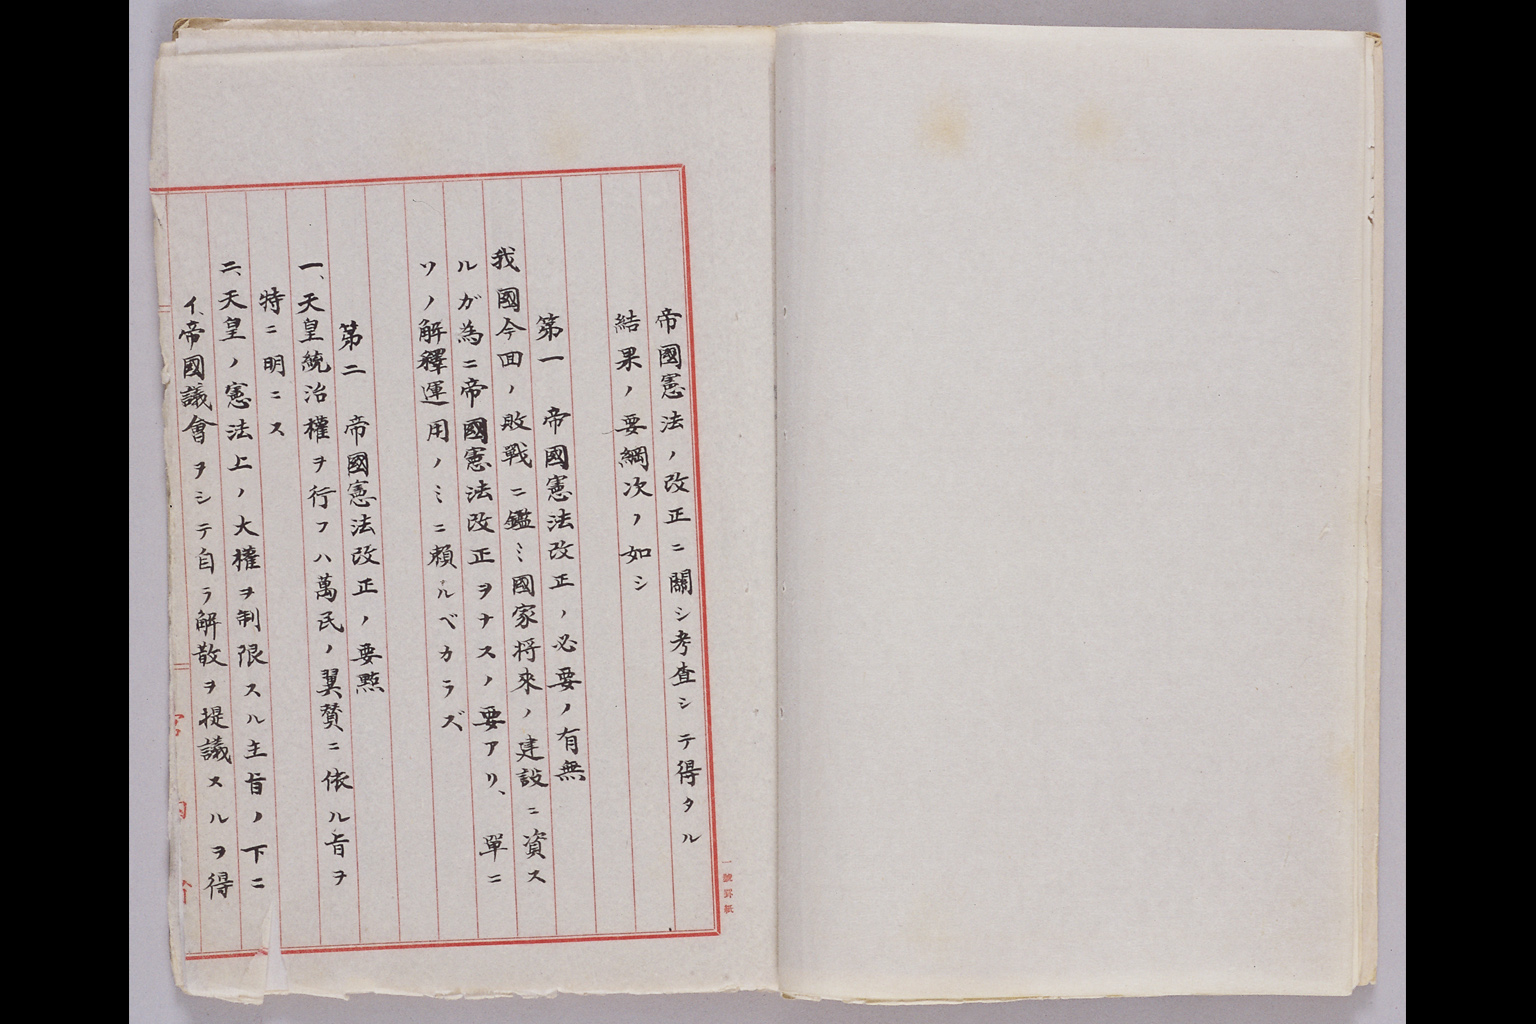 帝國憲法ノ改正ニ關シ考査シテ得タル
結果ノ要綱次ノ如シ
第一 帝國憲法改正ノ必要ノ有無
我國今回ノ敗戰ニ鑑ミ國家将來ノ建設ニ資ス
ルガ為ニ帝國憲法改正ヲナスノ要アリ、單ニ
ソノ解釋運用ノミニ頼ルベカラズ
第二 帝國憲法改正ノ要點
一、天皇統治權ヲ行フハ萬民ノ翼賛ニ依ル旨ヲ
特ニ明ニス
二、天皇ノ憲法上ノ大權ヲ制限スル主旨ノ下ニ
イ、帝國議會ヲシテ自ラ解散ヲ提議スルヲ得
宮内省
一號罫紙